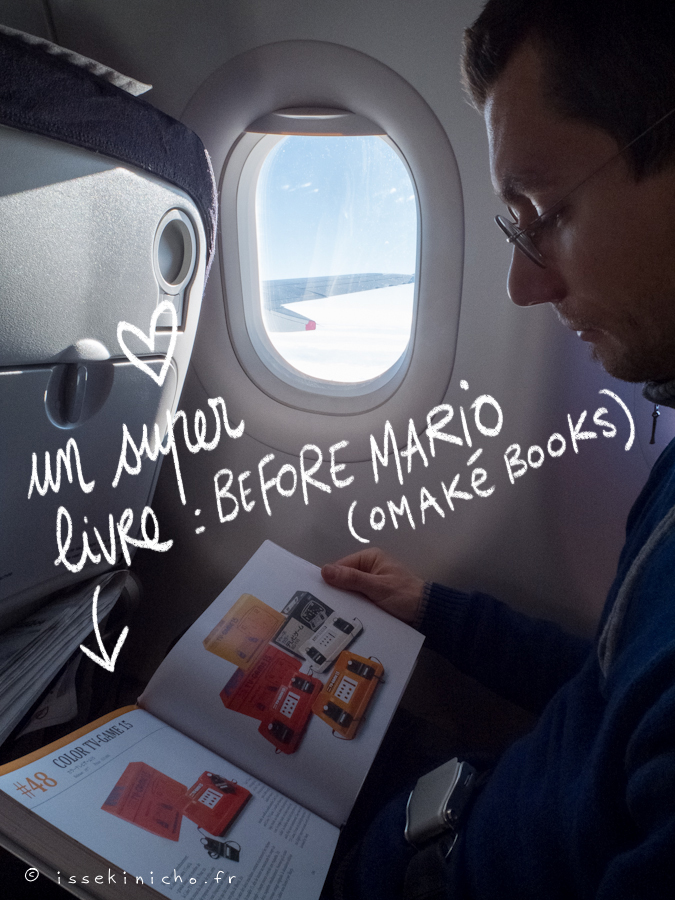 un super
livre : BEFORE MARIO
(OMAKÉ BOOKS)
#48 COLOR TV-GAME 15
© issekinicho.fr